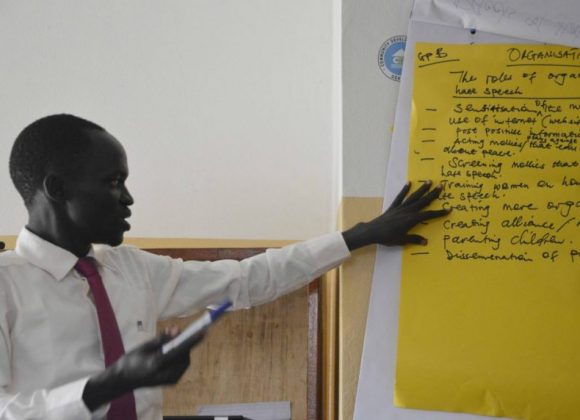 COMMUNITY
GP B ORGANISATI
The roles of orga
hate speech
— Sensitisation of the m
use of internet (websi
— post positive informati
— Acting movies/ that edu
about peace.
— Screening movies that
hate speech.
— Training women on ho
te speech.
Creating more orga
Creating alliance/
parenting children.
— Dissemenation of p